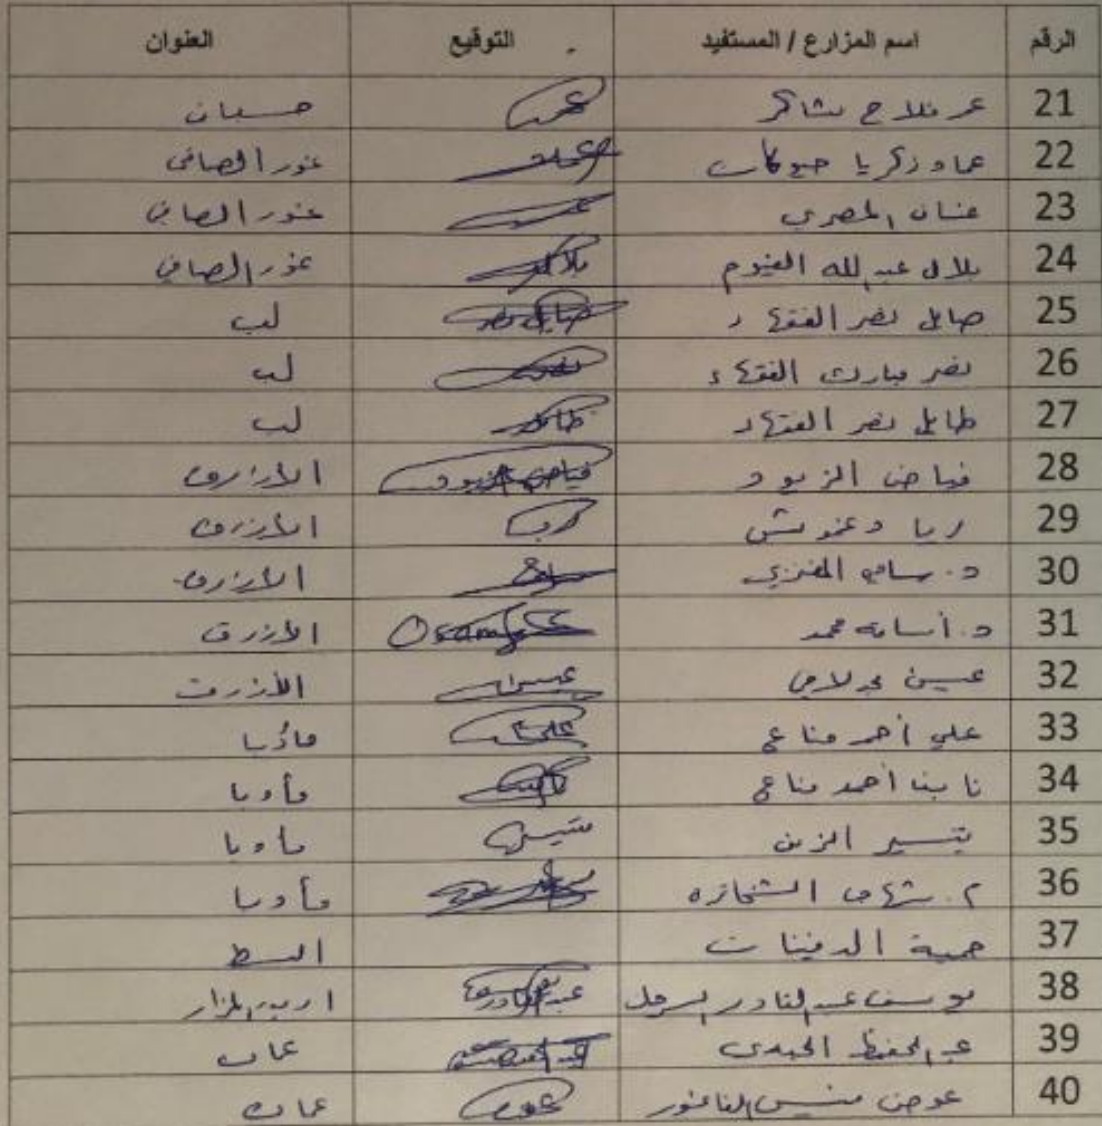 الرقم اسم المزارع / المستفيد التوقيع العنوان
21 عمر فلاح شاكر عمر حسبان
22 عماد زكريا عماد غور الصافي
23 غسان المصري غور الصافي
24 بلال عبد الله الفيوم بلال غور الصافي
25 صايل نصر الفقهاء صايل نصر لب
26 نصر مبارك الفقهاء نصر لب
27 طايل نصر الفقهاء طايل لب
28 فياض الزيود فياض الزيود الازرق
29 ربا دغمش الازرق
30 د. سامي العنزي سامي الازرق
31 د. أسامه محمد Osama الازرق
32 عيسى الأزرق
33 علي أحمد مناع علي مأدبا
34 أحمد مناع مأدبا
35 تيسير الزبن تيسير مادبا
36 م. شهاب الشخانزه مأدبا
37 حمية الدفينات السلط
38 يوسف عبد القادر عبد القادر اربد المزار
39 عبد الحفيظ العبدي عمان
40 عوض الناعور عوض عمان